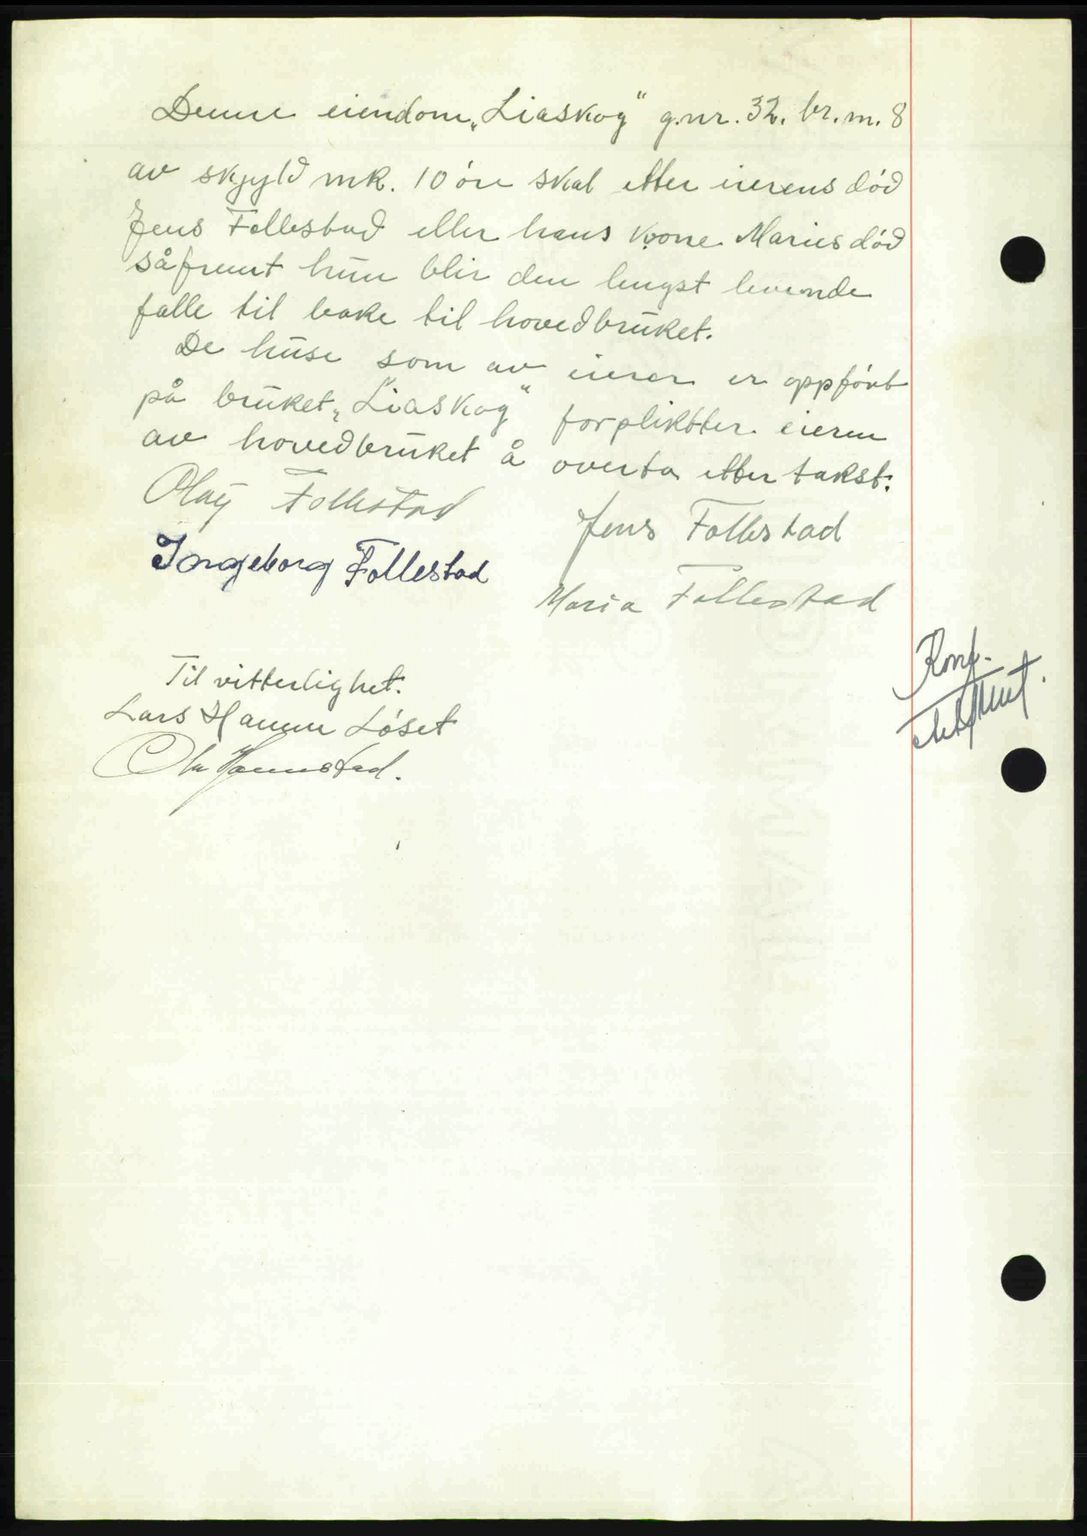 Denne eiendom „Liaskog“ g.nr. 32. br.nr. 8
av skyld mk. 10 øre skal etter eierens død
Jens Follestad eller hans kone Maries død
såfremt hun blir den lengst levende
falle til bake til hovedbruket.
De huse som av eieren er oppført
på bruket „Liaskog“ forplikter eieren
av hovedbruket å overta etter takst.
Olav Follestad
Jens Follestad
Ingeborg Follestad
Maria Follestad
Til vitterlighet.
Lars Hamn Løset
Ola Hannestad.
Konf.